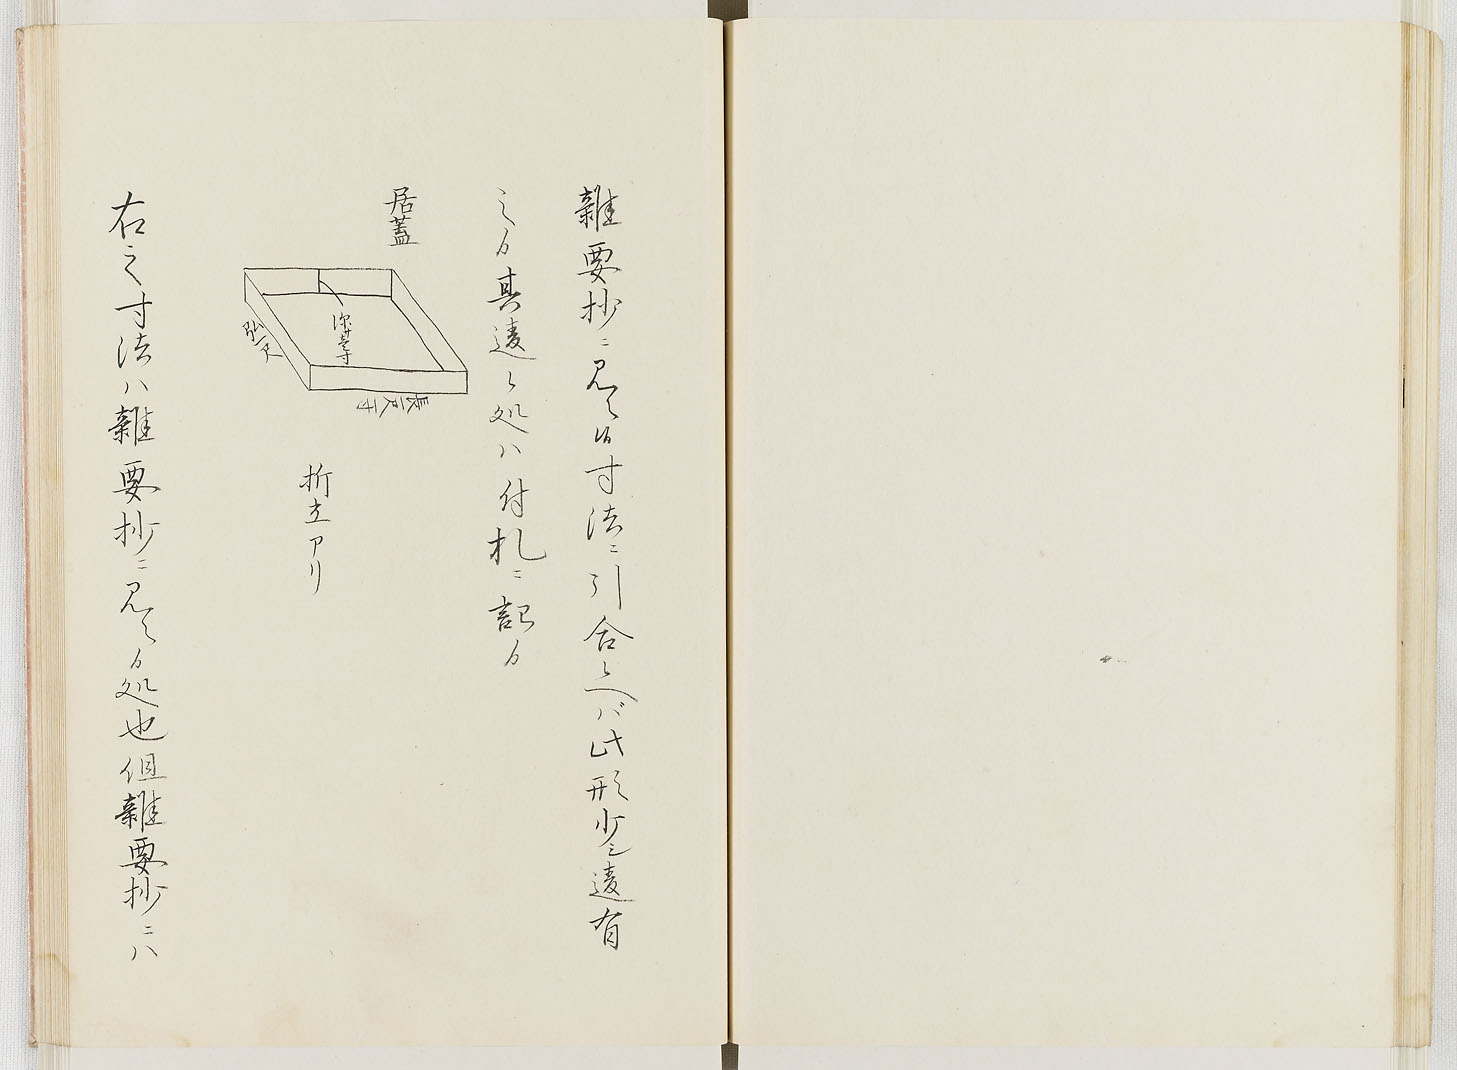 雑要抄ニ見ヘタル寸法ニ引合レヘバ此形少シ違有
之ル其違シ処ハ付札ニ記ル
居蓋
深サ
弘一尺
長一尺二寸
折立アリ
右之寸法ハ雑要抄ニ見ヘル処也但雑要抄ニハ